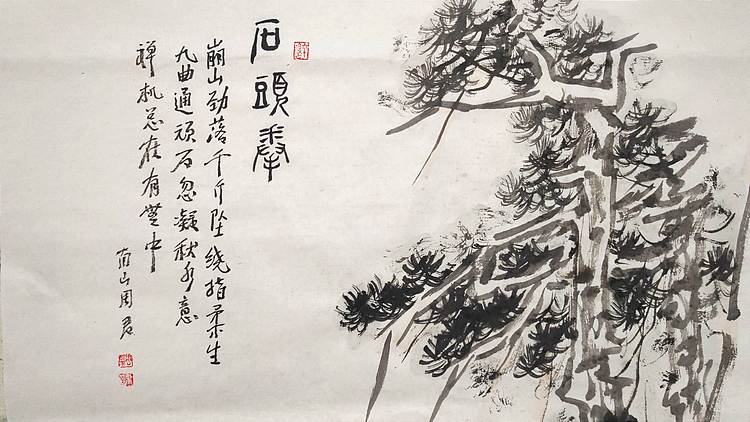 石頭拳
崩山劲落千斤坠绕指柔生
九曲通顽石忽凝秋水意
禅机总在有无中
南山周君